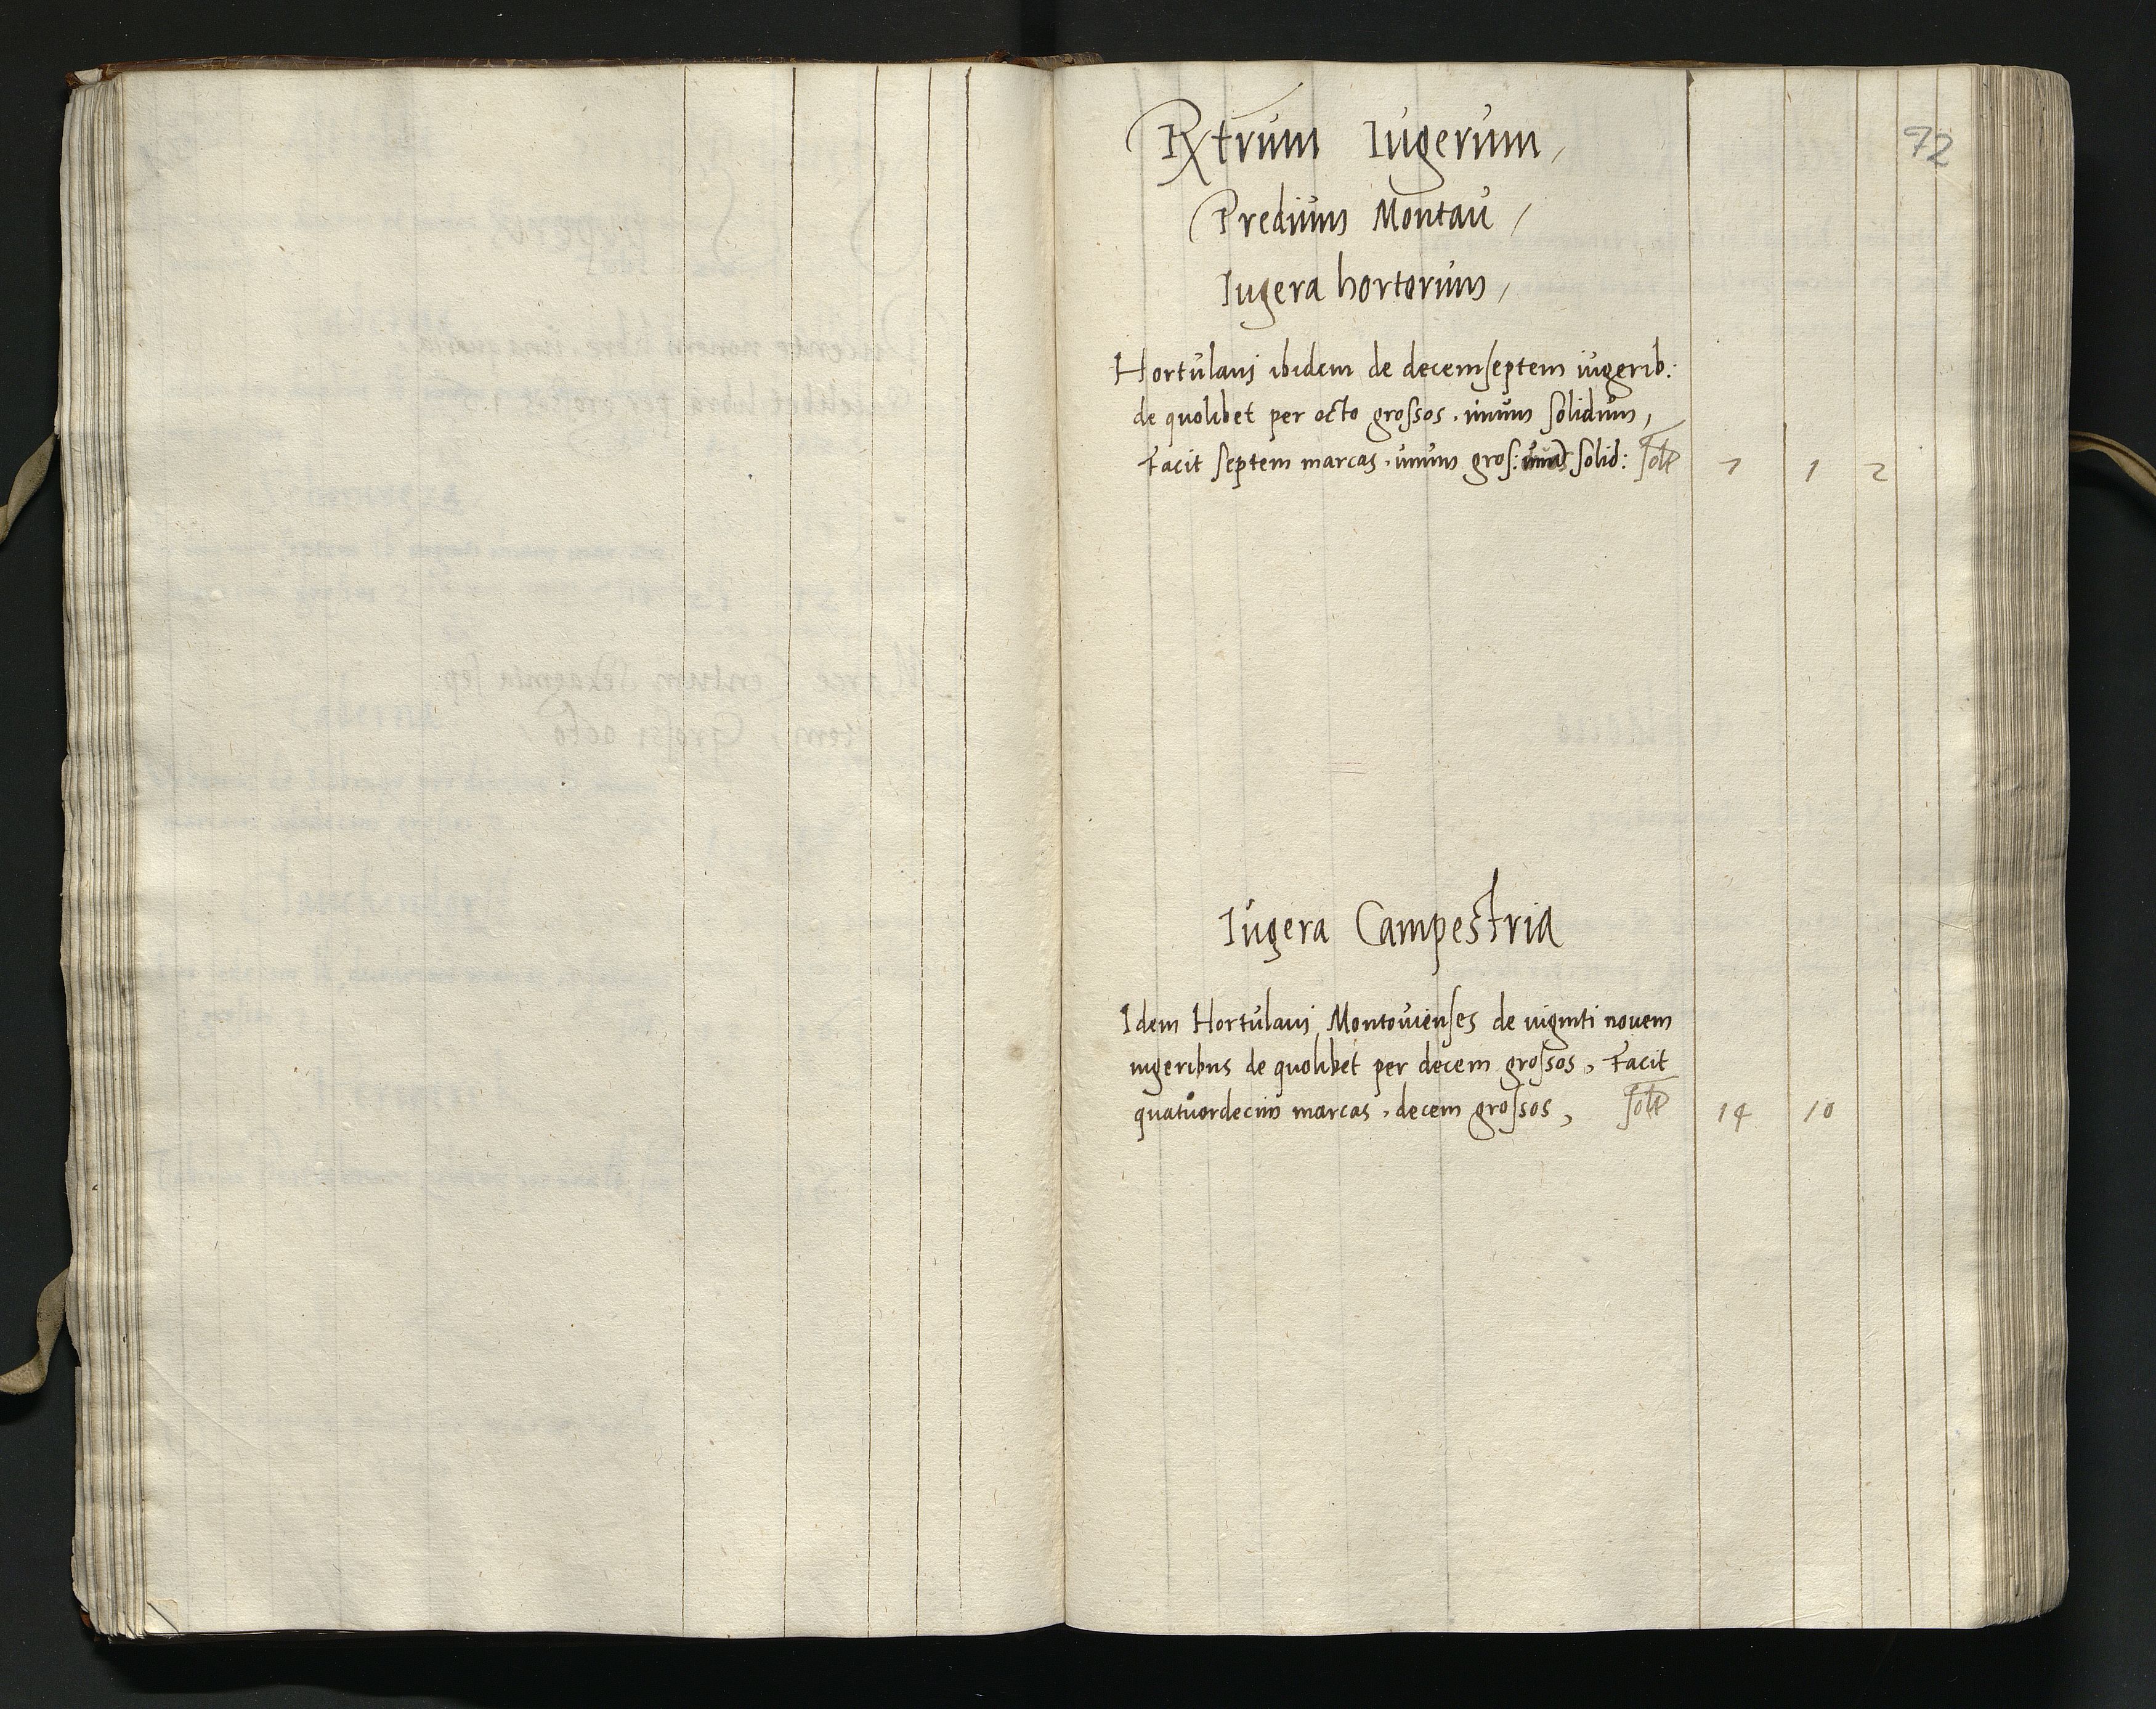 72
Rxtrum Iugerum,
Predium Montau,
Iugera hortorum,
Hortulani ibidem de decemseptem iugerib:
de quolibet per octo grossos, unum solidum,
Facit septem marcas, unum gros: solid: solt 7 1 2
Iugera Campestria
Idem Hortulani Montouienses de viginti nouem
iugeribus de quolibet per decem grossos, Facit
quatuordecim marcas, decem grossos, solt 14 10